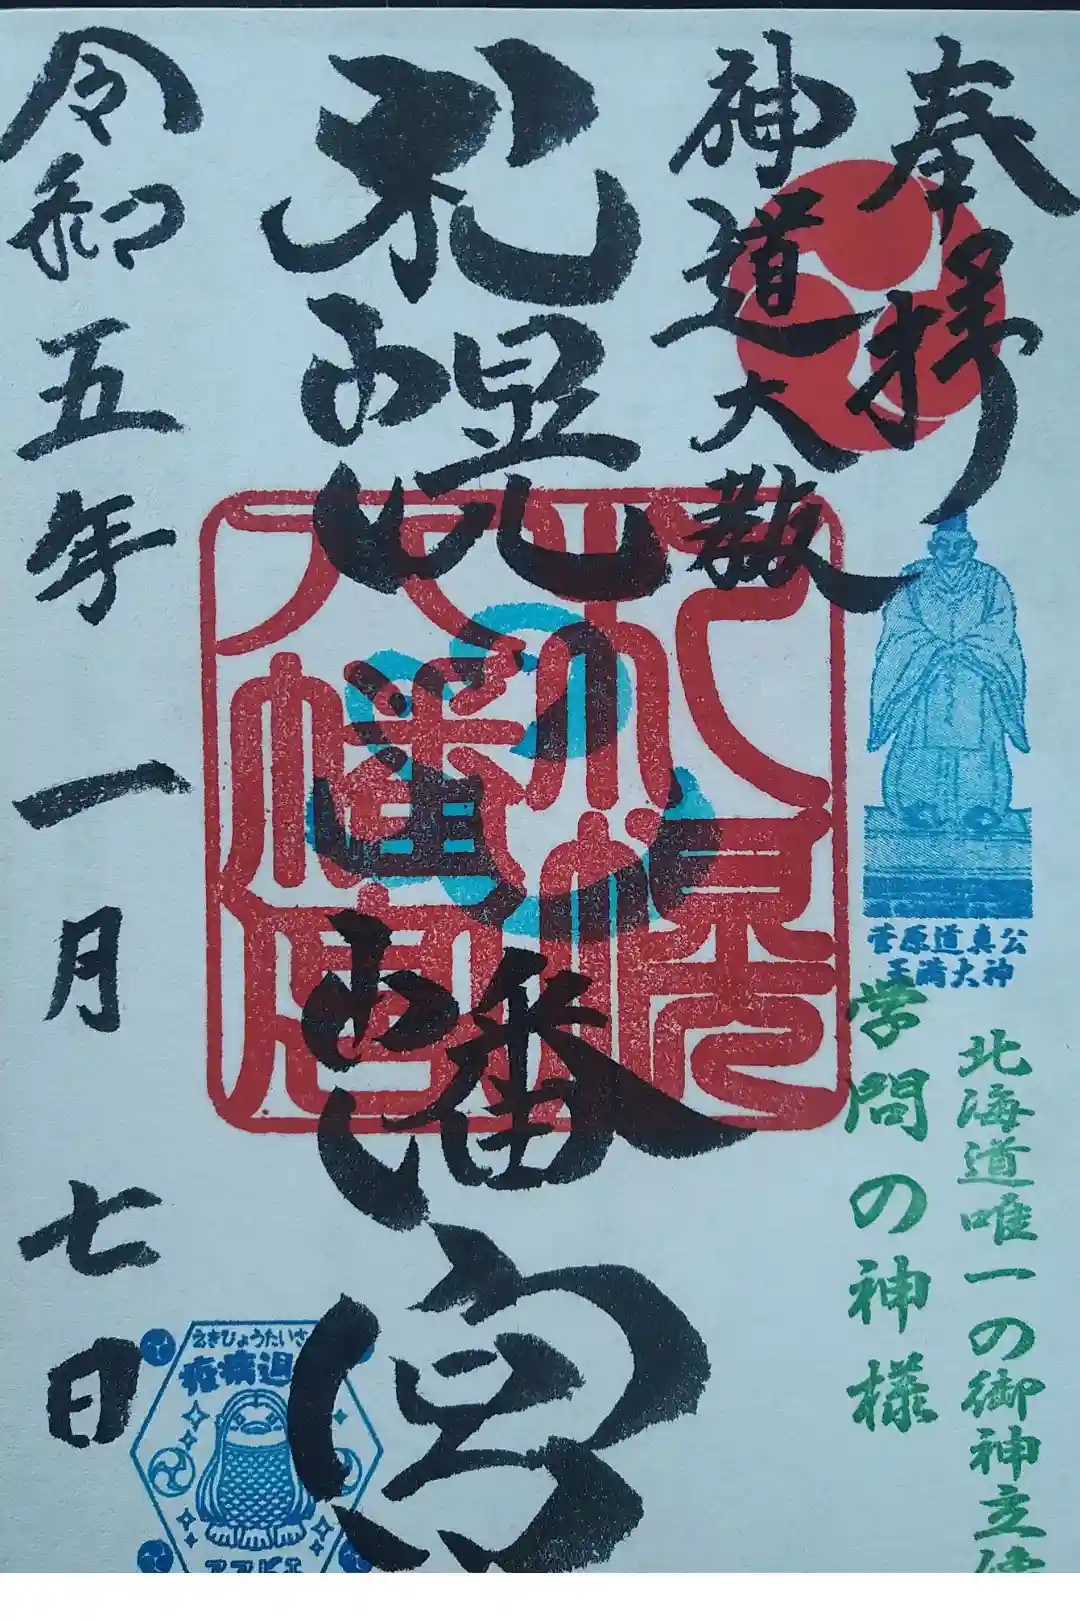 奉拝
神道大教
札幌八幡宮
札幌八幡宮
令和五年一月七日
菅原道真公
天満大神
北海道唯一の御神立像
学問の神様
えきびょうたいさ
疫病退
アマビエ